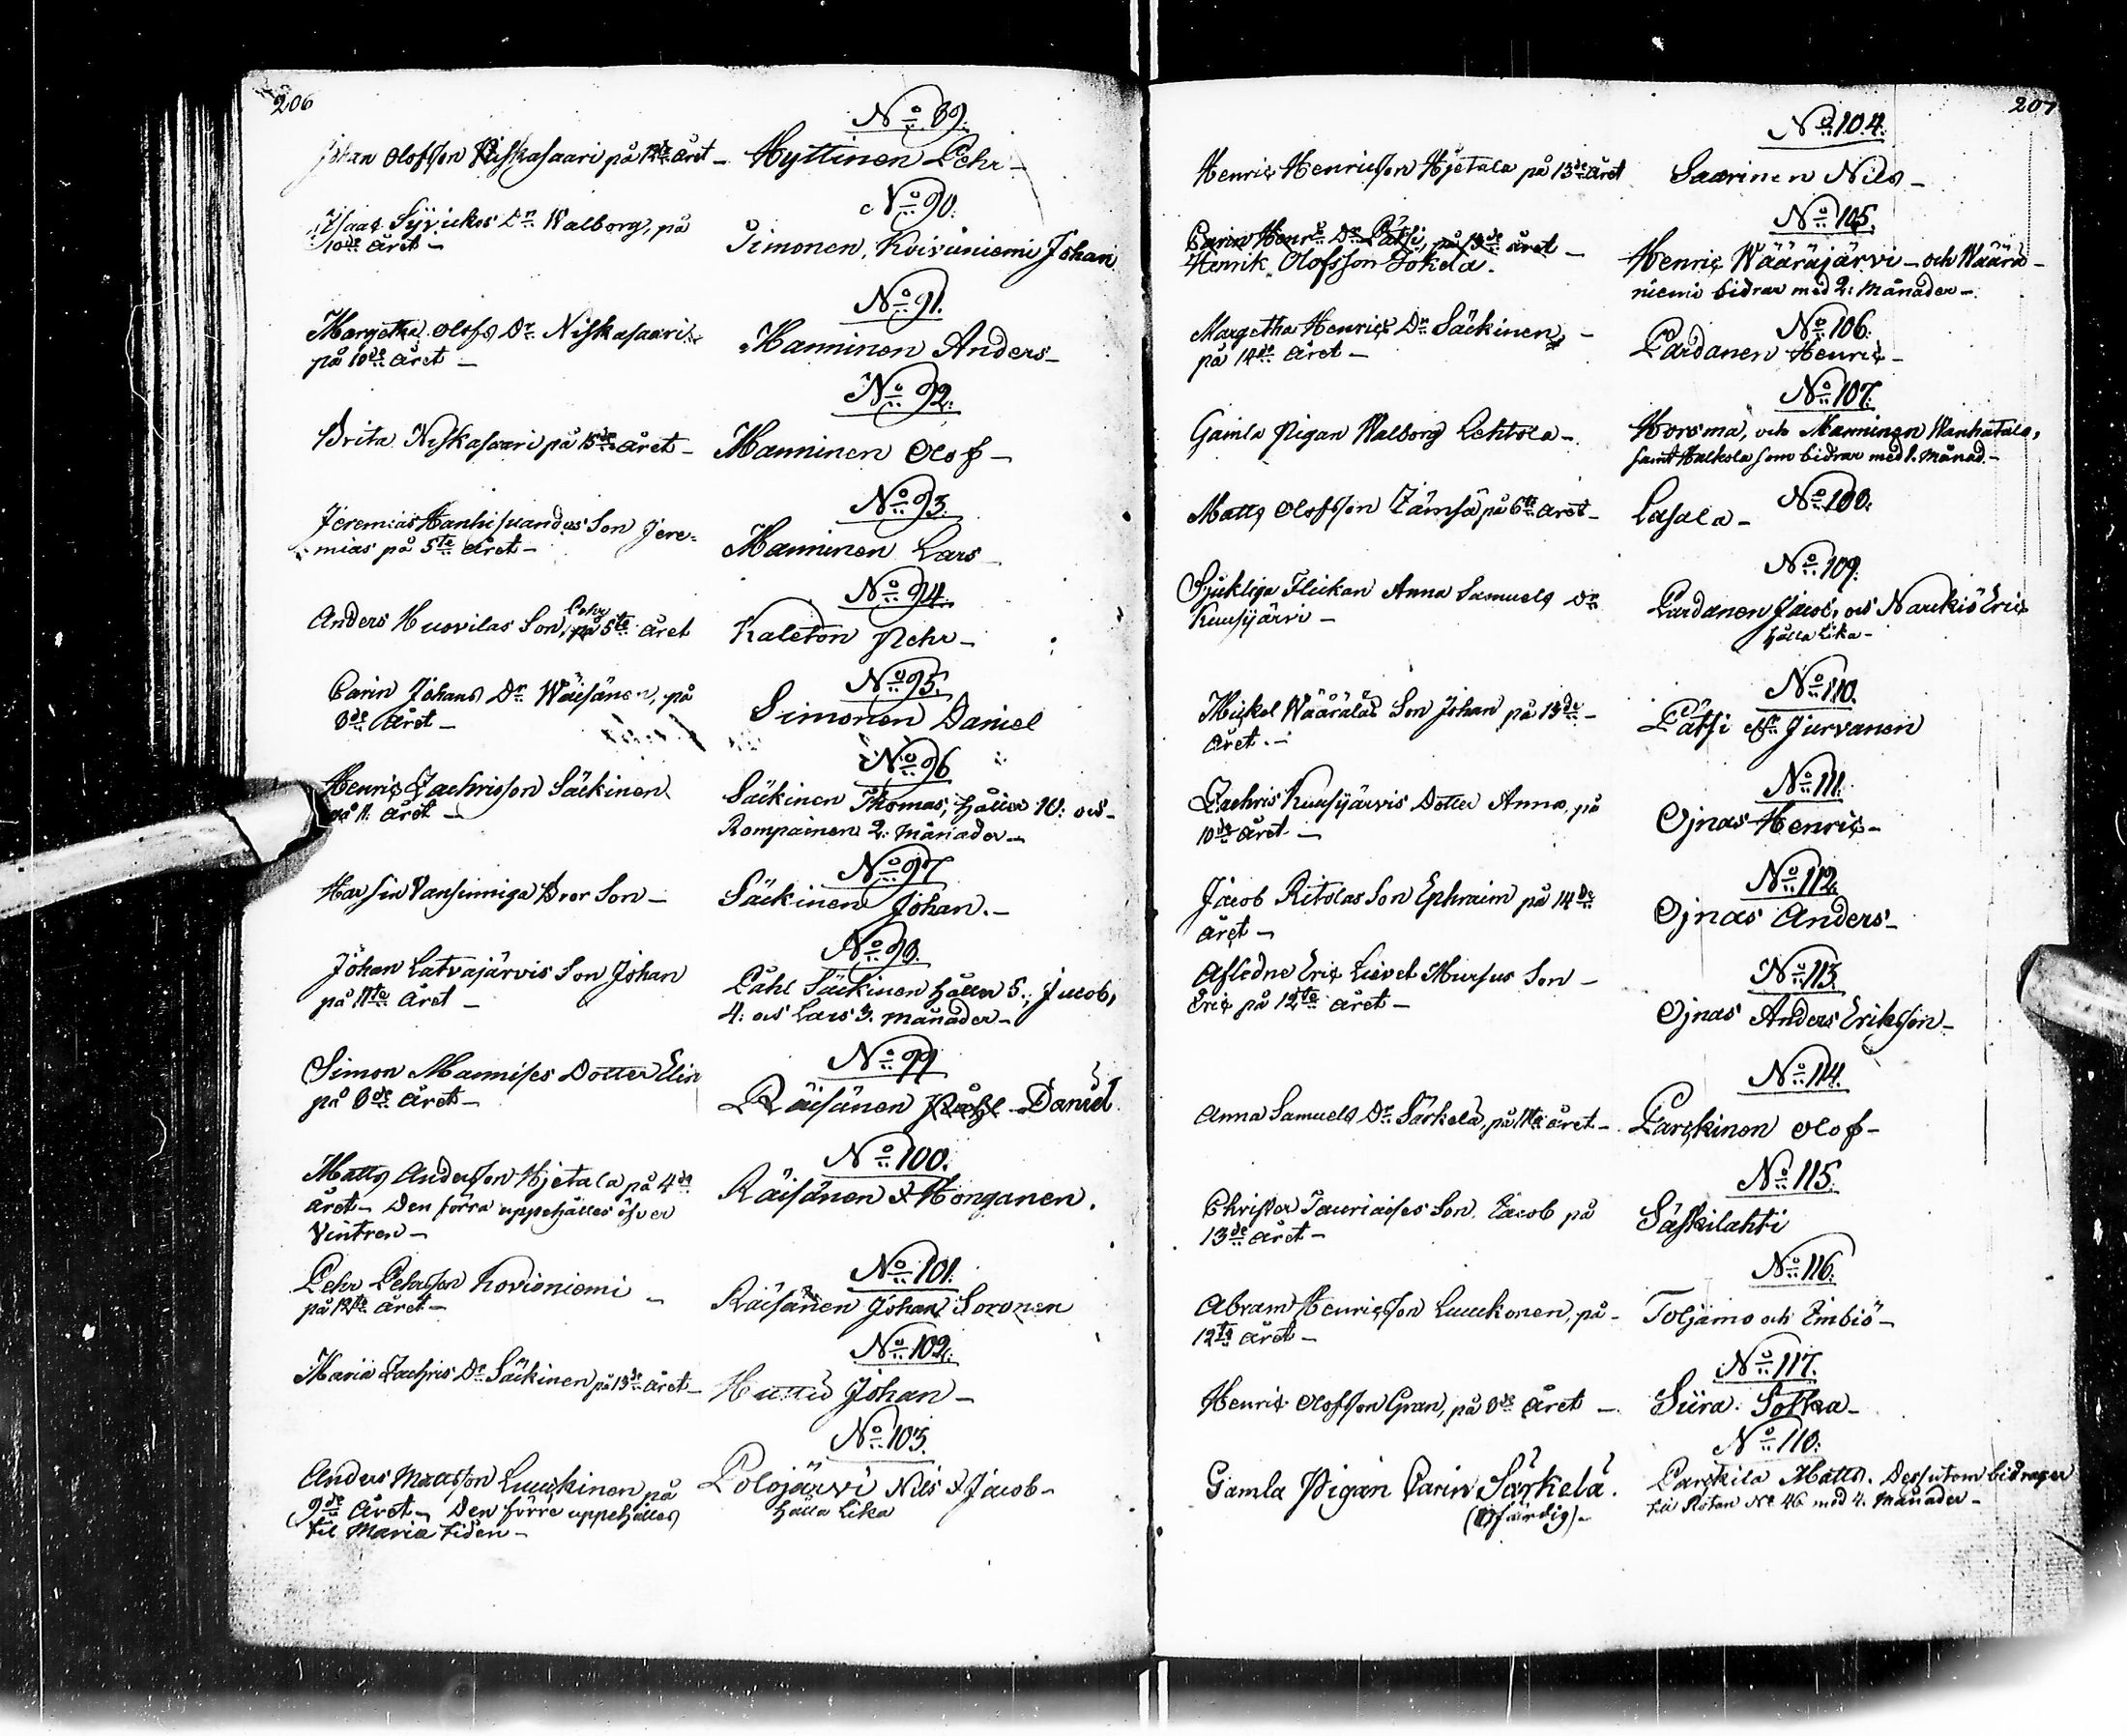 206
No 89.
Johan Olofsson Niskasaari på 12te året - Hyttinen Pehr -
No 90.
Isaac Syvickos Dr Walborg, på
10de året -
Timonen, Koivuniemi Johan
No 91.
Margetha Olofs Dr Niskasaari
på 10de året -
Manninen Anders -
No 92.
Brita Niskasaari på 15de året - Manninen Olof -
No 93.
Jeremias Son Jere-
mias på 5te året -
Manninen Lars
No 94.
Pehr
Anders Huovilas Son, på 5te året
Kaleton Pehr -
No 95.
Carin Johans Dr Wäisänen, på
8de året -
Simonen Daniel
No 96
Henric Zachrisson Säckinen
på 11: året -
Säckinen Thomas, håller 10: och
Rompainen 2: Månader -
No 97
Vansinniga Bror Son -
Säckinen Johan. -
No 98.
Johan Latvajärvis Son Johan
på 11te året -
Påhl Säckinen håller 5., Jacob,
4: och Lars 3. månader -
No 99
Simon Mannises Dotter Elin
på 8de året -
Räisänen Påhl Daniel
No 100.
Matts Andersson Hjetala på 4de
året - Den förra uppehälles öfver
Vintren -
Räisänen & Honganen.
No 101.
Pehr Pehrsson Kovioniemi -
på 12te året -
Räisänen Johan Soronen
No 102.
Maria Zachris Dr Säckinen på 13de året -
Huttu Johan -
No 103.
Anders Mattsson Luuckinen på
9de året - Den förre uppehälles
til Maria tiden -
Polojärvi Nils & Jacob -
hålla lika
207
No 104.
Henric Henricsson Hjetala på 13de året
Saarinen Nils -
No 105.
Carin Henrs Dr Pätsi, på 13de året -
Henrik Olofsson Tokela.
Henric Wääräjärvi - och Wäärä-
niemi bidrar med 2: Månader -
No 106.
Margetha Henrics Dr Säckinen, -
på 14de året -
Pardanen Henric -
No 107.
Gamla Pigan Walborg Lehtola -
Horsma, och Manninen Wanhatalo,
samt Halkola som bidrar med 1. Månad -
No 108.
Matts Olofsson Jämsä på 6te året -
Lasala -
No 109.
Sjukliga Flickan Anna Samuels Dr
Kuusijärvi -
Pardanen Jacob, och Narckiö Eric
hålla lika -
No 110.
Mickel Wääräläs Son Johan på 13de -
året. -
Pätsi och Jurvanen
No 111.
Zachris Kuusijärvis Dotter Anna, på
10de året -
Ojnas Henric -
No 112.
Jacob Ritolas Son Ephraim på 14de
året -
Ojnas Anders -
No 113.
Afledne Eric Lievet Mursus Son -
Eric på 12te året -
Ojnas Anders Eriksson -
No 114.
Anna Samuels Dr Särkelä, på 11te året -
Parckinen Olof -
No 115.
Christer Tauriaises Son Jacob på
13de året -
Säskilahti
No 116.
Abram Henricsson Luuckonen, på -
12te året -
Toljamo och Jmbiö -
No 117.
Henric Olofsson Gran, på 8de året -
Siira. Sotka -
No 118.
Gamla Pigan Carin Särkelä.
(Ofärdig) -
Parckila Matts. Dessutom bidrager
till Rotan No 46 med 4. Månader -